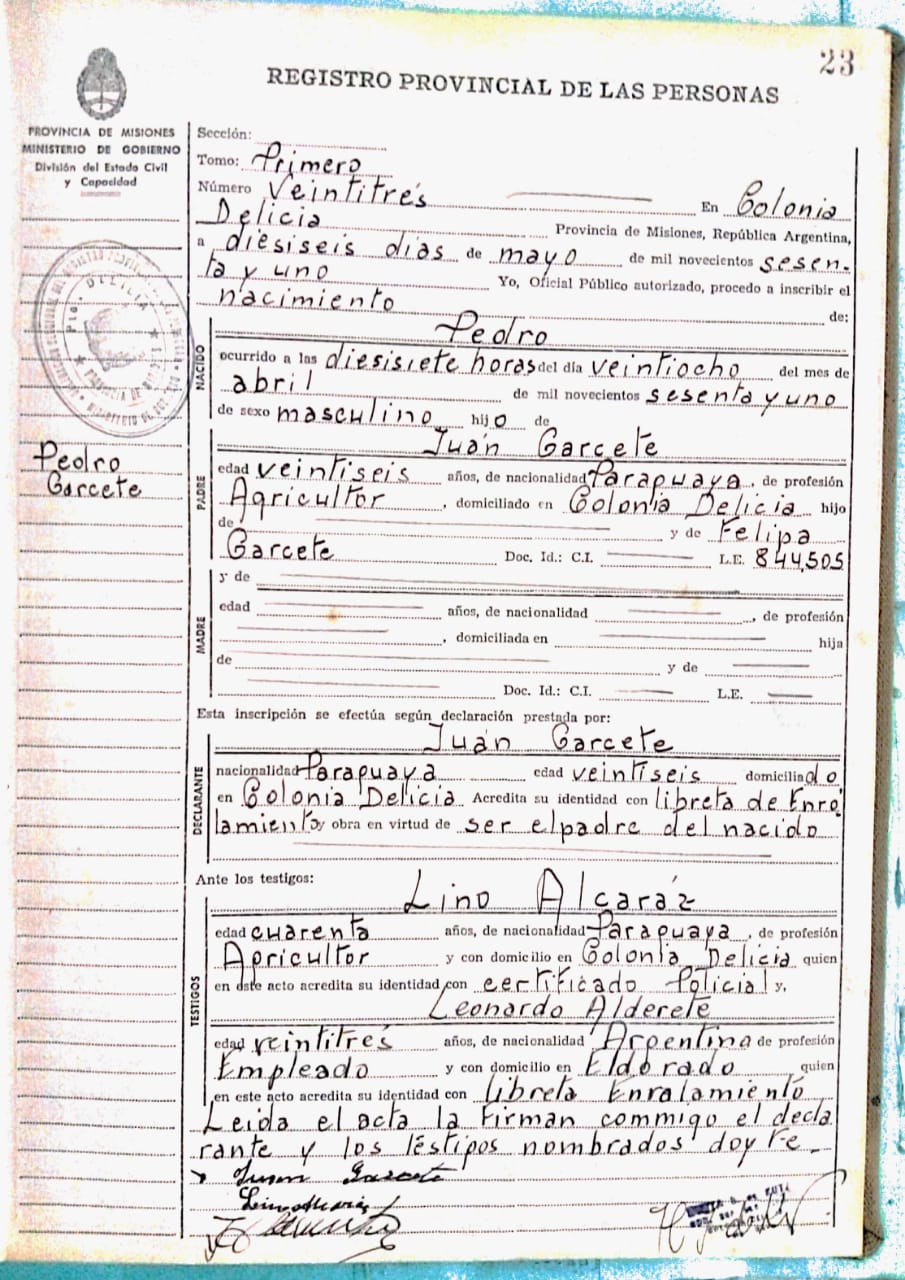 23
REGISTRO PROVINCIAL DE LAS PERSONAS
PROVINCIA DE MISIONES
MINISTERIO DE GOBIERNO
División del Estado Civil
y Capacidad
Pedro
Garcete
Sección:
Tomo: Primero
Número Veintitrés En Colonia
Delicia Provincia de Misiones, República Argentina,
a diesiseis días de mayo de mil novecientos sesen-
ta y uno Yo, Oficial Público autorizado, procedo a inscribir el
nacimiento de:
NACIDO
Pedro
ocurrido a las diesisiete horas del día veintiocho del mes de
abril de mil novecientos sesenta y uno
de sexo masculino hijo de
PADRE
Juán Garcete
edad veintiseis años, de nacionalidad Paraguaya, de profesión
Agricultor, domiciliado en Colonia Delicia hijo
de y de Felipa
Garcete Doc. Id.: C.I. L.E. 844,505
MADRE
y de
edad años, de nacionalidad , de profesión
, domiciliada en hija
de y de
Doc. Id.: C.I. L.E.
Esta inscripción se efectúa según declaración prestada por:
DECLARANTE
Juán Garcete
nacionalidad Paraguaya edad veintiseis domiciliado
en Colonia Delicia Acredita su identidad con libreta de Enro
lamiento y obra en virtud de ser el padre del nacido
Ante los testigos:
TESTIGOS
Lino Alcaráz
edad cuarenta años, de nacionalidad Paraguaya, de profesión
Agricultor y con domicilio en Colonia Delicia quien
en este acto acredita su identidad con certificado Policial y,
Leonardo Alderete
edad veintitrés años, de nacionalidad Argentina de profesión
Empleado y con domicilio en Eldorado quien
en este acto acredita su identidad con libreta Enralamiento
Leida el acta la firman commigo el decla
rante y los téstigos nombrados doy fe.
Juan Garcete